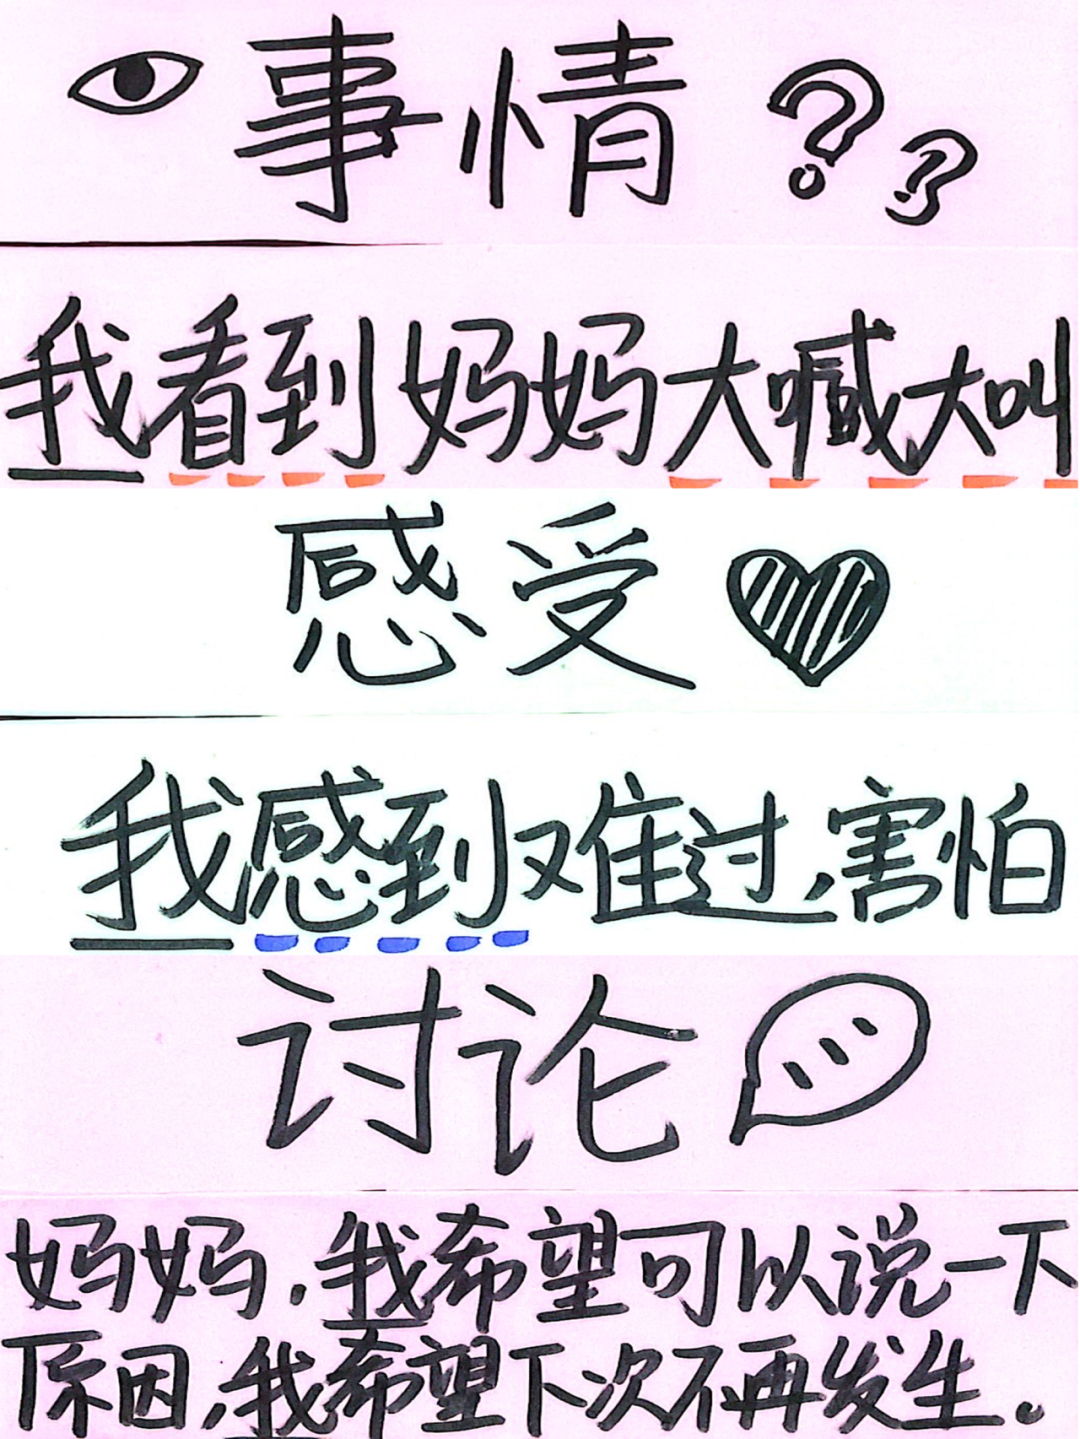 事情??
我看到妈妈大喊大叫
感受
我感到难过,害怕
讨论
妈妈,我希望可以说一下
原因,我希望下次不再发生。